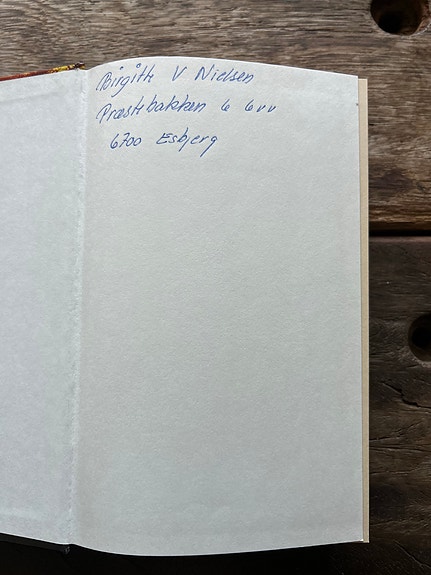 Birgitte V Nielsen
Præstebakken 6 6vv
6700 Esbjerg